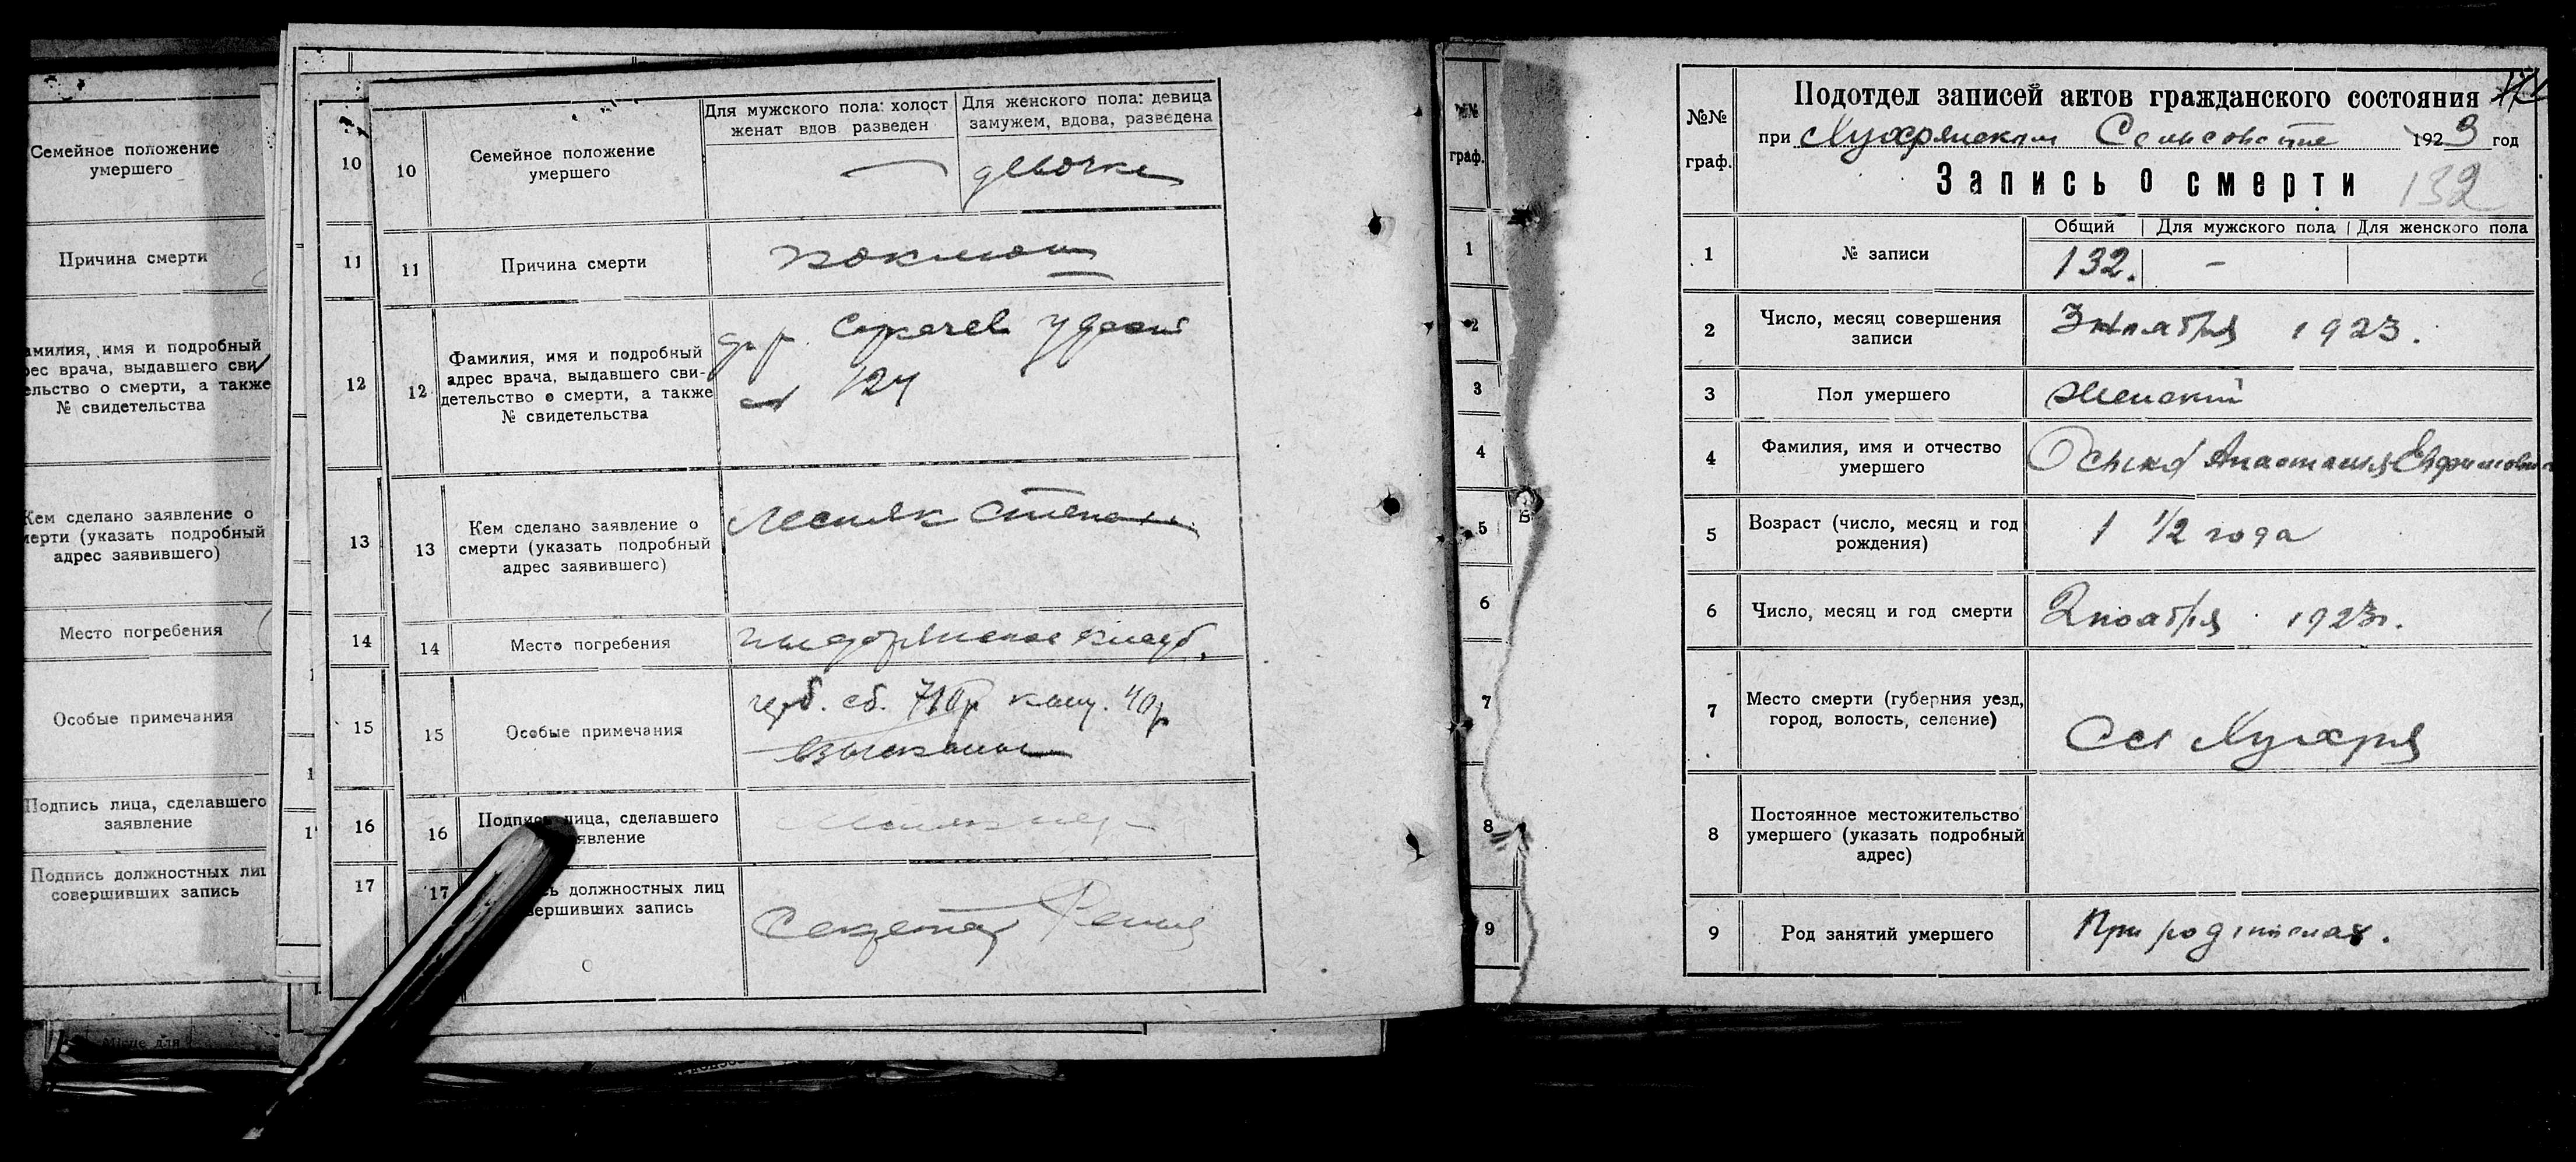 Семейное положение
умершего
Причина смерти
амилия, имя и подробный
рес врача, выдавшего сви
ельство о смерти, а также
№ свидетельства
Кем сделано заявление о
мерти (указать подробный
адрес заявившего)
Место погребения
Особые примечания
Подпись лица, сделавшего
заявление
Подпись должностных лиц
совершивших запись
Місце для
10
11
12
13
14
15
16
17
10 Семейное положение умершего
Для мужского пола: холост
женат вдов разведен
Для женского пола: девица
замужем, вдова, разведена
— девочка
11 Причина смерти
коклюш
12 Фамилия, имя и подробный
адрес врача, выдавшего сви-
детельство о смерти, а также
№ свидетельства
124
13 Кем сделано заявление о
смерти (указать подробный
адрес заявившего)
Лесняк Степан
14 Место погребения
кладб.
15 Особые примечания
герб. сб. 710р канц. 40р
взысканы
16 Подпись лица, сделавшего
явление
17 сь должностных лиц
вершивших запись
Секретар
№№
граф.
1
2
3
4
5
6
7
8
9
№№
граф.
Подотдел записей актов гражданского состояния
при Мухрянском Сельсовете 1923 год
Запись о смерти 132
1 № записи
Общий Для мужского пола Для женского пола
132. -
2 Число, месяц совершения
записи
3 ноября 1923.
3 Пол умершего
женский
4 Фамилия, имя и отчество
умершего
Осыка Анастасия Евфимовна
5 Возраст (число, месяц и год
рождения)
1 1/2 года
6 Число, месяц и год смерти
2 ноября 1923г.
7 Место смерти (губерния уезд,
город, волость, селение)
8 Постоянное местожительство
умершего (указать подробный
адрес)
9 Род занятий умершего
При родителях.